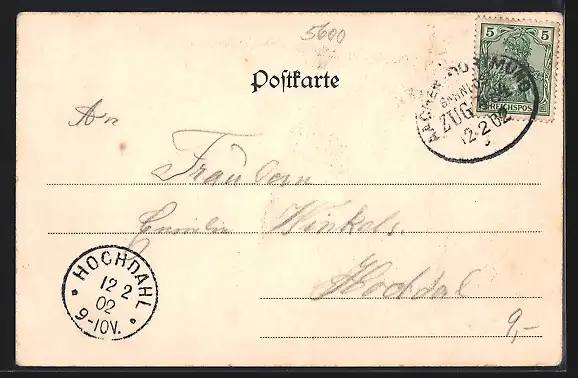 5600
5 5
REICHSPOST
Postkarte
AACHEN-DORTMUND
ZUG
12.2.02
An
Fräulein
Emilie Winkels
Hochdal
HOCHDAHL
12 2
02
9-10V.
9,-